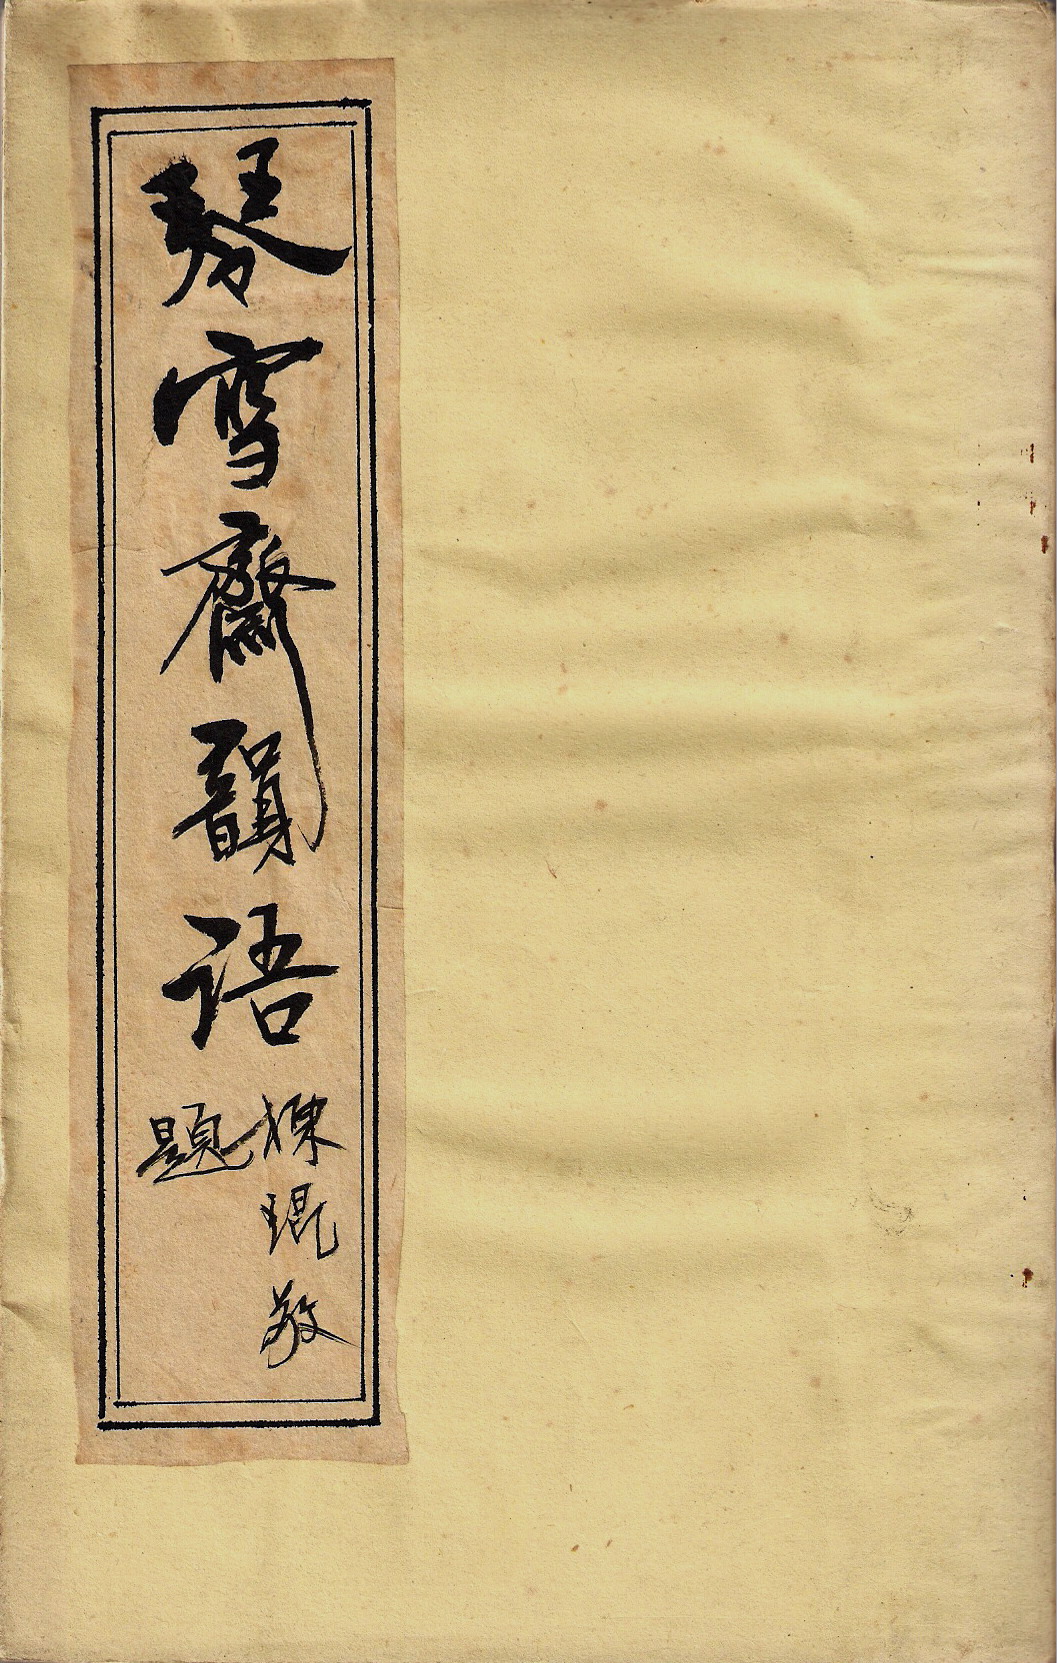 琴雪齋韻語
琨敬
題